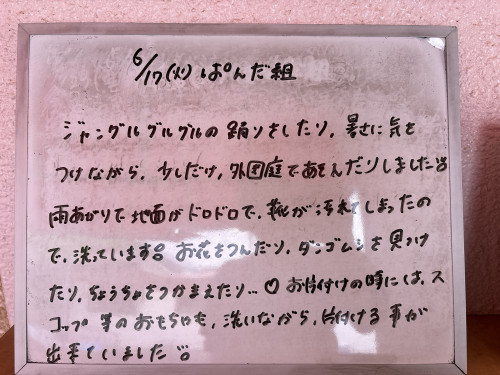 6/17(火) ぱんだ組
ジャングルグルグルの踊りをしたり、暑さに気を
つけながら、少しだけ、外園庭であそんだりしました
雨あがりで地面がドロドロで、靴が汚れてしまったの
で、洗っています。お花をつんだり、ダンゴムシを見つけ
たり、ちょうちょをつかまえたり…♡ お片付けの時には、ス
コップ等のおもちゃも、洗いながら、片付ける事が
出来ていました